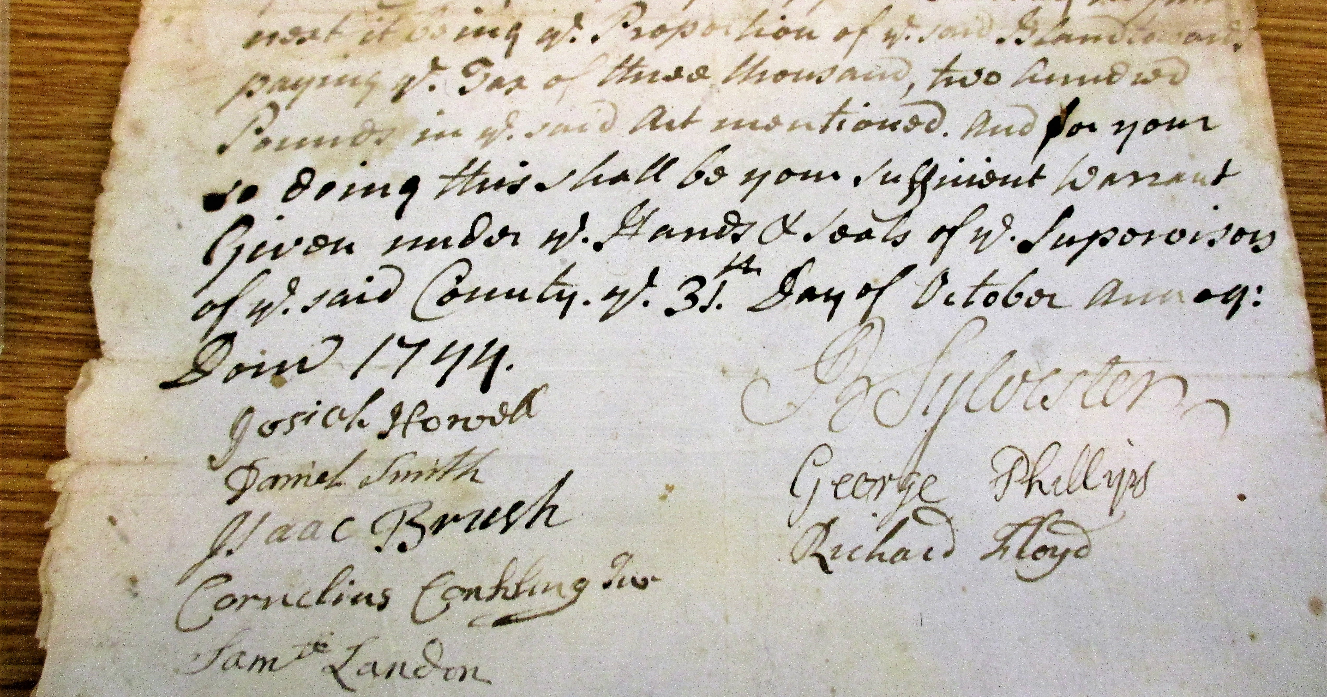 next it being ye. Proportion of ye. said Island towards
paying ye. Tax of three thousand, two hundred
Pounds in ye. said Act mentioned. And for your
so doing this shall be your sufficient Warrant
Given under ye. Hands & seals of ye. Supervisors
of ye. said County. ye. 31.st Day of October Annoq:
Dom 1744.
Josiah Howell
Daniel Smith
Isaac Brush
Cornelius Conkling Jur
Samll Landon
Sylvester
George Phillips
Richard Floyd